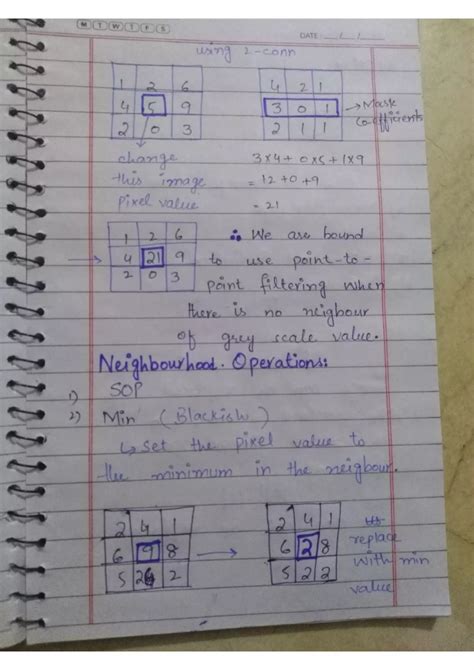 M T W T F S
DATE: __/__/__
using 2-conn
1 2 6
4 5 9
2 0 3
4 2 1
3 0 1 → Mask
2 1 1 co-efficients
change
this image
pixel value
3x4 + 0x5 + 1x9
= 12 + 0 + 9
= 21
1 2 6
→ 4 21 9
2 0 3
∴ We are bound
to use point-to-
point filtering when
there is no neigbour
of grey scale value.
Neighbourhood Operations:
1) SOP
2) Min (Blackish)
↳ Set the pixel value to
the minimum in the neigbour.
2 4 1
6 9 8 →
5 2 2
2 4 1
6 2 8
5 2 2
replace
with min
value